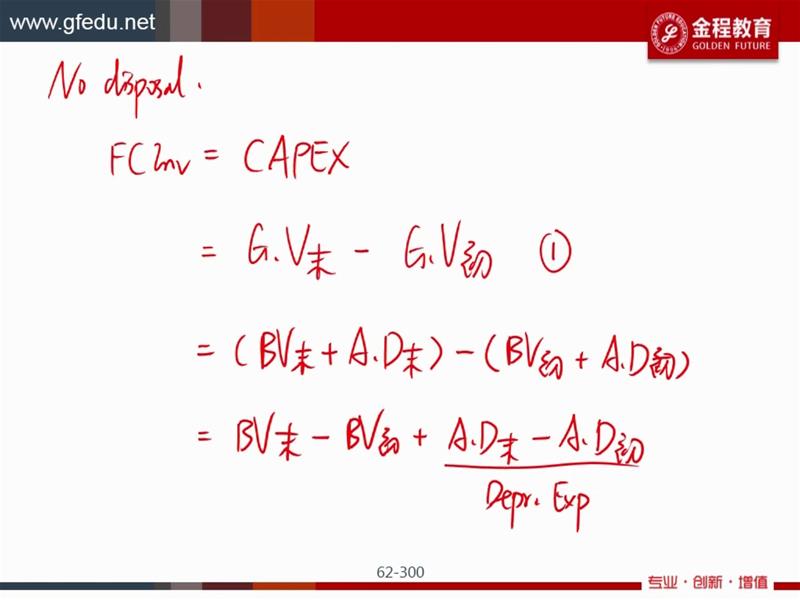 www.gfedu.net
金程教育
GOLDEN FUTURE
No disposal.
FCInv = CAPEX
= G.V末 - G.V初 ①
= (BV末 + A.D末) - (BV初 + A.D初)
= BV末 - BV初 + A.D末 - A.D初
Depr. Exp
62-300
专业·创新·增值